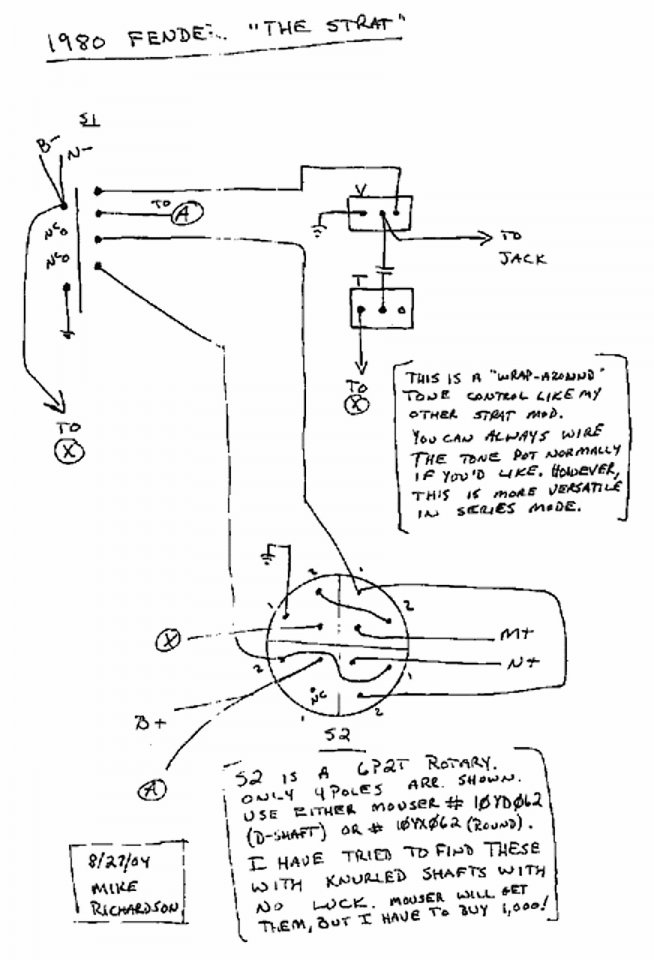 1980 FENDE.. "THE STRAT"
S1
B-
N-
TO
A
NC
NC
V
TO
JACK
T
TO
X
TO
X
THIS IS A "WRAP-AROUND"
TONE CONTROL LIKE MY
OTHER STRAT MOD.
YOU CAN ALWAYS WIRE
THE TONE POT NORMALLY
IF YOU'D LIKE. HOWEVER,
THIS IS MORE VERSATILE
IN SERIES MODE.
2
1
1
2
X
M+
N+
2
1
NC
1
2
B+
A
S2
S2 IS A 6P2T ROTARY.
ONLY 4 POLES ARE SHOWN.
USE EITHER MOUSER # 10YD062
(D-SHAFT) OR # 10YX062 (ROUND).
I HAVE TRIED TO FIND THESE
WITH KNURLED SHAFTS WITH
NO LUCK. MOUSER WILL GET
THEM, BUT I HAVE TO BUY 1,000!
8/27/04
MIKE
RICHARDSON